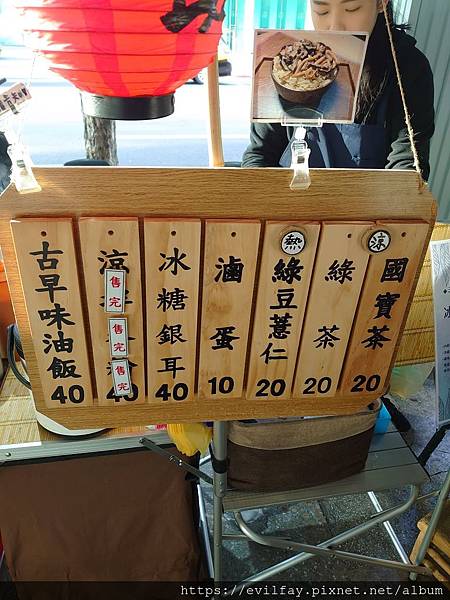 古早味油飯 40
涼
售完
售完
售完
40
冰糖銀耳 40
滷蛋 10
熱
綠豆薏仁 20
綠茶 20
涼
國寶茶 20
https://evilfay.pixnet.net/album